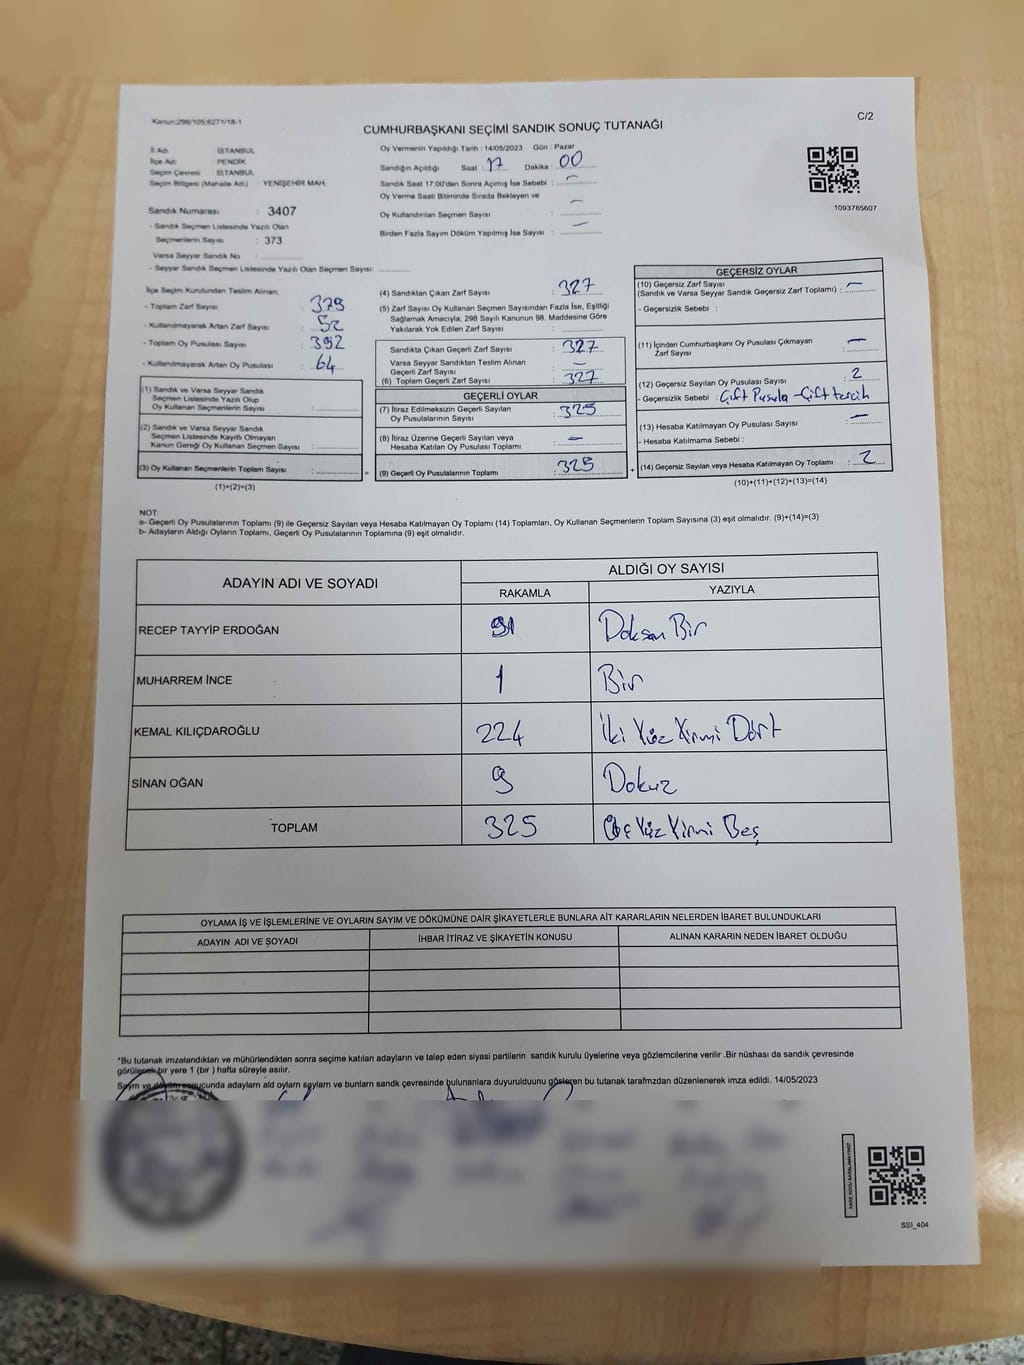 Kanun:298/105;6271/18-1
C/2
CUMHURBAŞKANI SEÇİMİ SANDIK SONUÇ TUTANAĞI
İl Adı : İSTANBUL
İlçe Adı : PENDİK
Seçim Çevresi : İSTANBUL
Seçim Bölgesi (Mahalle Adı) : YENİŞEHİR MAH.
Sandık Numarası : 3407
- Sandık Seçmen Listesinde Yazılı Olan
Seçmenlerin Sayısı : 373
Varsa Seyyar Sandık No :
- Seyyar Sandık Seçmen Listesinde Yazılı Olan Seçmen Sayısı:
Oy Vermenin Yapıldığı Tarih : 14/05/2023 Gün : Pazar
Sandığın Açıldığı Saat : 17 Dakika : 00
Sandık Saat 17:00'den Sonra Açımış İse Sebebi : —
Oy Verme Saati Bitiminde Sırada Bekleyen ve
Oy Kullandırılan Seçmen Sayısı : —
Birden Fazla Sayım Döküm Yapılmış İse Sayısı : —
1093785607
İlçe Seçim Kurulundan Teslim Alınan;
- Toplam Zarf Sayısı : 379
- Kullanılmayarak Artan Zarf Sayısı : 52
- Toplam Oy Pusulası Sayısı : 392
- Kullanılmayarak Artan Oy Pusulası : 64
(1) Sandık ve Varsa Seyyar Sandık
Seçmen Listesinde Yazılı Olup
Oy Kullanan Seçmenlerin Sayısı :
(2) Sandık ve Varsa Seyyar Sandık
Seçmen Listesinde Kayıtlı Olmayan
Kanun Gereği Oy Kullanan Seçmen Sayısı :
(3) Oy Kullanan Seçmenlerin Toplam Sayısı :
=
(1)+(2)=(3)
(4) Sandıktan Çıkan Zarf Sayısı : 327
(5) Zarf Sayısı Oy Kullanan Seçmen Sayısından Fazla İse, Eşitliği
Sağlamak Amacıyla; 298 Sayılı Kanunun 98. Maddesine Göre
Yakılarak Yok Edilen Zarf Sayısı :
Sandıkta Çıkan Geçerli Zarf Sayısı : 327
Varsa Seyyar Sandıktan Teslim Alınan
Geçerli Zarf Sayısı : —
(6) Toplam Geçerli Zarf Sayısı : 327
GEÇERLİ OYLAR
(7) İtiraz Edilmeksizin Geçerli Sayılan
Oy Pusulalarının Sayısı : 325
(8) İtiraz Üzerine Geçerli Sayılan veya
Hesaba Katılan Oy Pusulaları Toplamı : —
(9) Geçerli Oy Pusulalarının Toplamı : 325
+
GEÇERSİZ OYLAR
(10) Geçersiz Zarf Sayısı
(Sandık ve Varsa Seyyar Sandık Geçersiz Zarf Toplamı) : —
- Geçersizlik Sebebi :
(11) İçinden Cumhurbaşkanı Oy Pusulası Çıkmayan
Zarf Sayısı : —
(12) Geçersiz Sayılan Oy Pusulası Sayısı : 2
- Geçersizlik Sebebi : Çift Pusula - Çift tercih
(13) Hesaba Katılmayan Oy Pusulası Sayısı : —
- Hesaba Katılmama Sebebi :
(14) Geçersiz Sayılan veya Hesaba Katılmayan Oy Toplamı : 2
(10)+(11)+(12)+(13)=(14)
NOT:
a- Geçerli Oy Pusulalarının Toplamı (9) ile Geçersiz Sayılan veya Hesaba Katılmayan Oy Toplamı (14) Toplamları, Oy Kullanan Seçmenlerin Toplam Sayısına (3) eşit olmalıdır. (9)+(14)=(3)
b- Adayların Aldığı Oyların Toplamı, Geçerli Oy Pusulalarının Toplamına (9) eşit olmalıdır.
ADAYIN ADI VE SOYADI
ALDIĞI OY SAYISI
RAKAMLA YAZIYLA
RECEP TAYYİP ERDOĞAN 91 Doksan Bir
MUHARREM İNCE 1 Bir
KEMAL KILIÇDAROĞLU 224 İki Yüz Yirmi Dört
SİNAN OĞAN 9 Dokuz
TOPLAM 325 Üç Yüz Yirmi Beş
OYLAMA İŞ VE İŞLEMLERİNE VE OYLARIN SAYIM VE DÖKÜMÜNE DAİR ŞİKAYETLERLE BUNLARA AİT KARARLARIN NELERDEN İBARET BULUNDUKLARI
ADAYIN ADI VE SOYADI İHBAR İTİRAZ VE ŞİKAYETİN KONUSU ALINAN KARARIN NEDEN İBARET OLDUĞU
*Bu tutanak imzalandıktan ve mühürlendikten sonra seçime katılan adayların ve talep eden siyasi partilerin sandık kurulu üyelerine veya gözlemcilerine verilir .Bir nüshası da sandık çevresinde
görülecek bir yere 1 (bir ) hafta süreyle asılır.
Sayım ve döküm sonucunda adayların ald oyların sayıların ve bunların sandk çevresinde bulunanlara duyurulduunu gösteren bu tutanak tarafmzdan düzenlenerek imza edildi. 14/05/2023
SSI_404